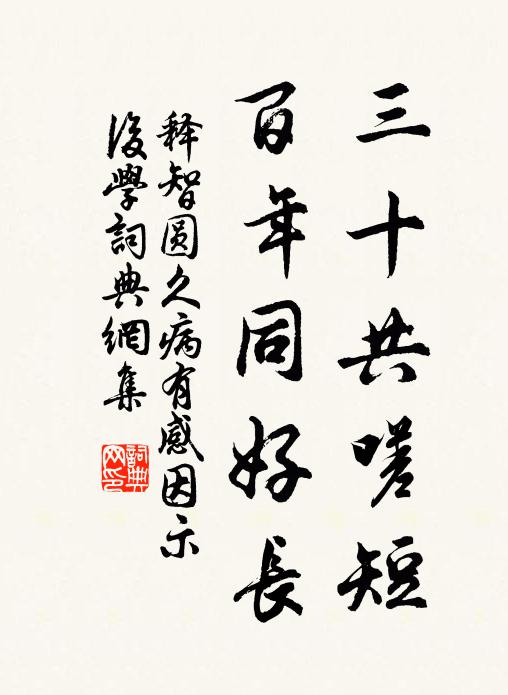 三十共嗟短
百年同好长
释智圆久病有感因示
後學詞典網集
詞典
网印